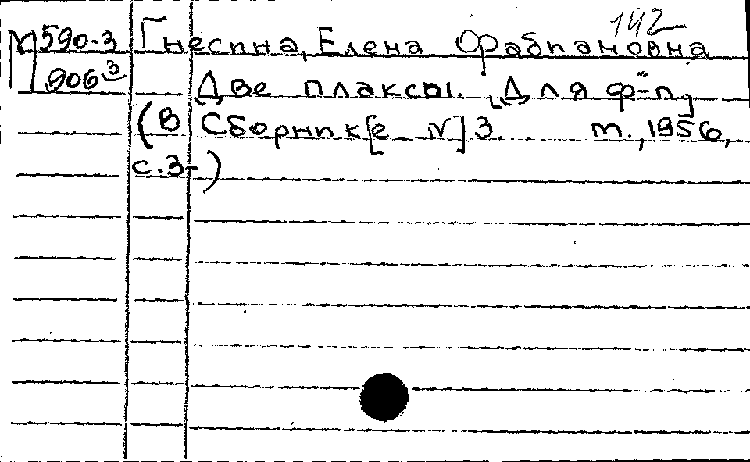 142
М 590-3 Гнесина, Елена Фабиановна
906³ Две плаксы. [Для ф-п]
(В Сборник[е №] 3. М., 1956,
с. 3- )